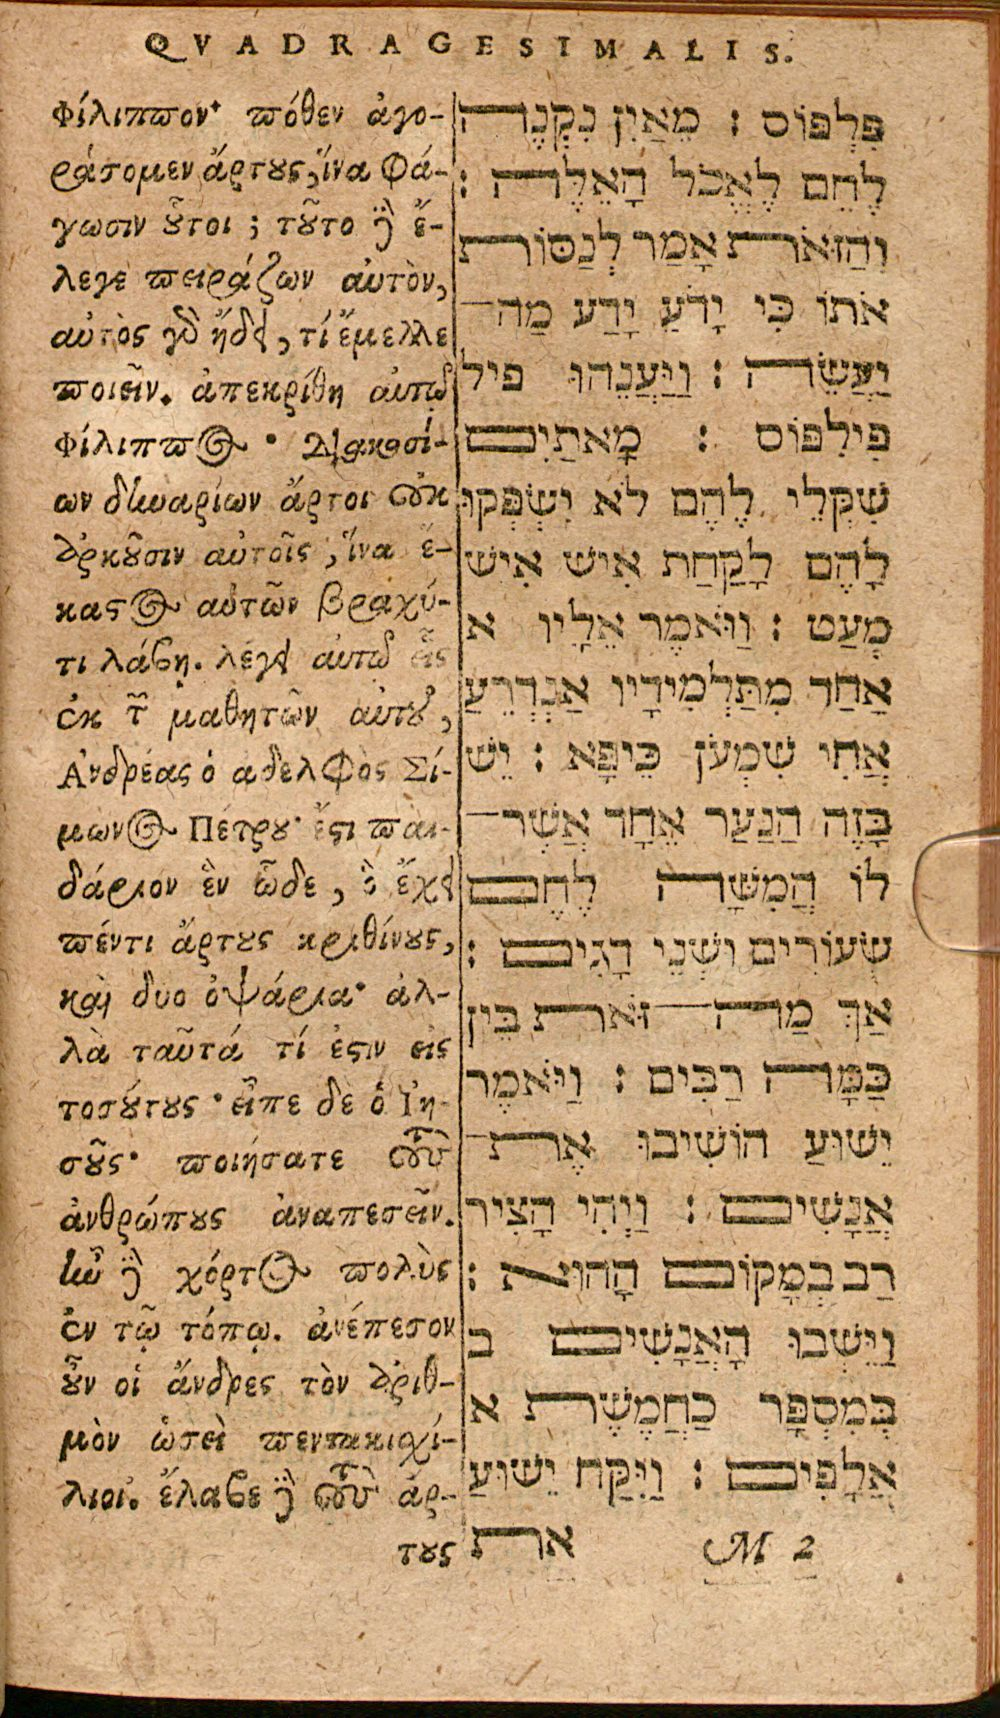 QVADRAGESIMALIS.
Φίλιππον· πόθεν ἀγο-
ράσομεν ἄρτους, ἵνα φά-
γωσιν οὗτοι; τοῦτο δὲ ἔ-
λεγε πειράζων αὐτὸν,
αὐτὸς γὰρ ᾔδει, τί ἔμελλε
ποιεῖν. ἀπεκρίθη αὐτῷ
Φίλιππος· Διακοσί-
ων δηναρίων ἄρτοι οὐκ
ἀρκοῦσιν αὐτοῖς, ἵνα ἕ-
καστος αὐτῶν βραχύ-
τι λάβῃ. λέγει αὐτῷ εἷς
ἐκ τῶν μαθητῶν αὐτοῦ,
Ἀνδρέας ὁ ἀδελφὸς Σί-
μωνος Πέτρου· ἔστι παι-
δάριον ἓν ὧδε, ὃ ἔχει
πέντι ἄρτους κριθίνους,
καὶ δυο ὀψάρια· ἀλ-
λὰ ταῦτά τί ἐστιν εἰς
τοσούτους· εἶπε δε ὁ Ἰη-
σοῦς· ποιήσατε τοὺς
ἀνθρώπους ἀναπεσεῖν.
ἦν δὲ χόρτος πολὺς
ἐν τῷ τόπῳ. ἀνέπεσον
οὖν οἱ ἄνδρες τὸν ἀριθ-
μὸν ὡσεὶ πεντακισχί-
λιοι. ἔλαβε δὲ τοὺς ἄρ-
τους
פִלְפּוֹס : מֵאַיִן נִקְנֶה
לֶחֶם לֶאֱכֹל הָאֵלֶּה :
וְהַזּאֹת אָמַר לְנַסּוֹת
אֹתוֹ כִּי יָדֹעַ יָדַע מַה־
יַּעֲשֶׂה : וַיַּעֲנֵהוּ פיל
פִילִפּוֹס : מָאתַיִם
שִׁקְלֵי לֶהֶם לֹא יִשְׂפְּקוּ
לָהֶם לָקַחַת אִישׁ אִישׁ
מְעַט : וַיּאֹמֶר אֵלָיו א
אַחַד מִתַּלְמִידָיו אַנְדְרֵעַ
אֲחִי שִׁמְעֹן כֵּיפָא : יֵשׁ
בָּזֶה הַנַּעַר אֶחָד אֲשֶׁר־
לוֹ הֲמִשָּׁה לֶחֶם
שְׂעוֹרִים וּשְׁנֵי דָגִים :
אַךְ מַה־זּאֹת בֵּין
כַּמָּה רַבִּים : וַיּאֹמֶר
יֵשׁוּעַ הוֹשִׁיבוּ אֶת־
אֲנָשִׁים : וַיְהִי הָצִיר
רַב בְּמָקוֹם הָהוּא :
וַיֵּשְׁבוּ הָאֲנָשִׁים ב
בְּמִסְפָּר כַּחֲמֶשֶׁת א
אֲלָפִים : וַיִּקַּח יֵשׁוּעַ
את
M 2